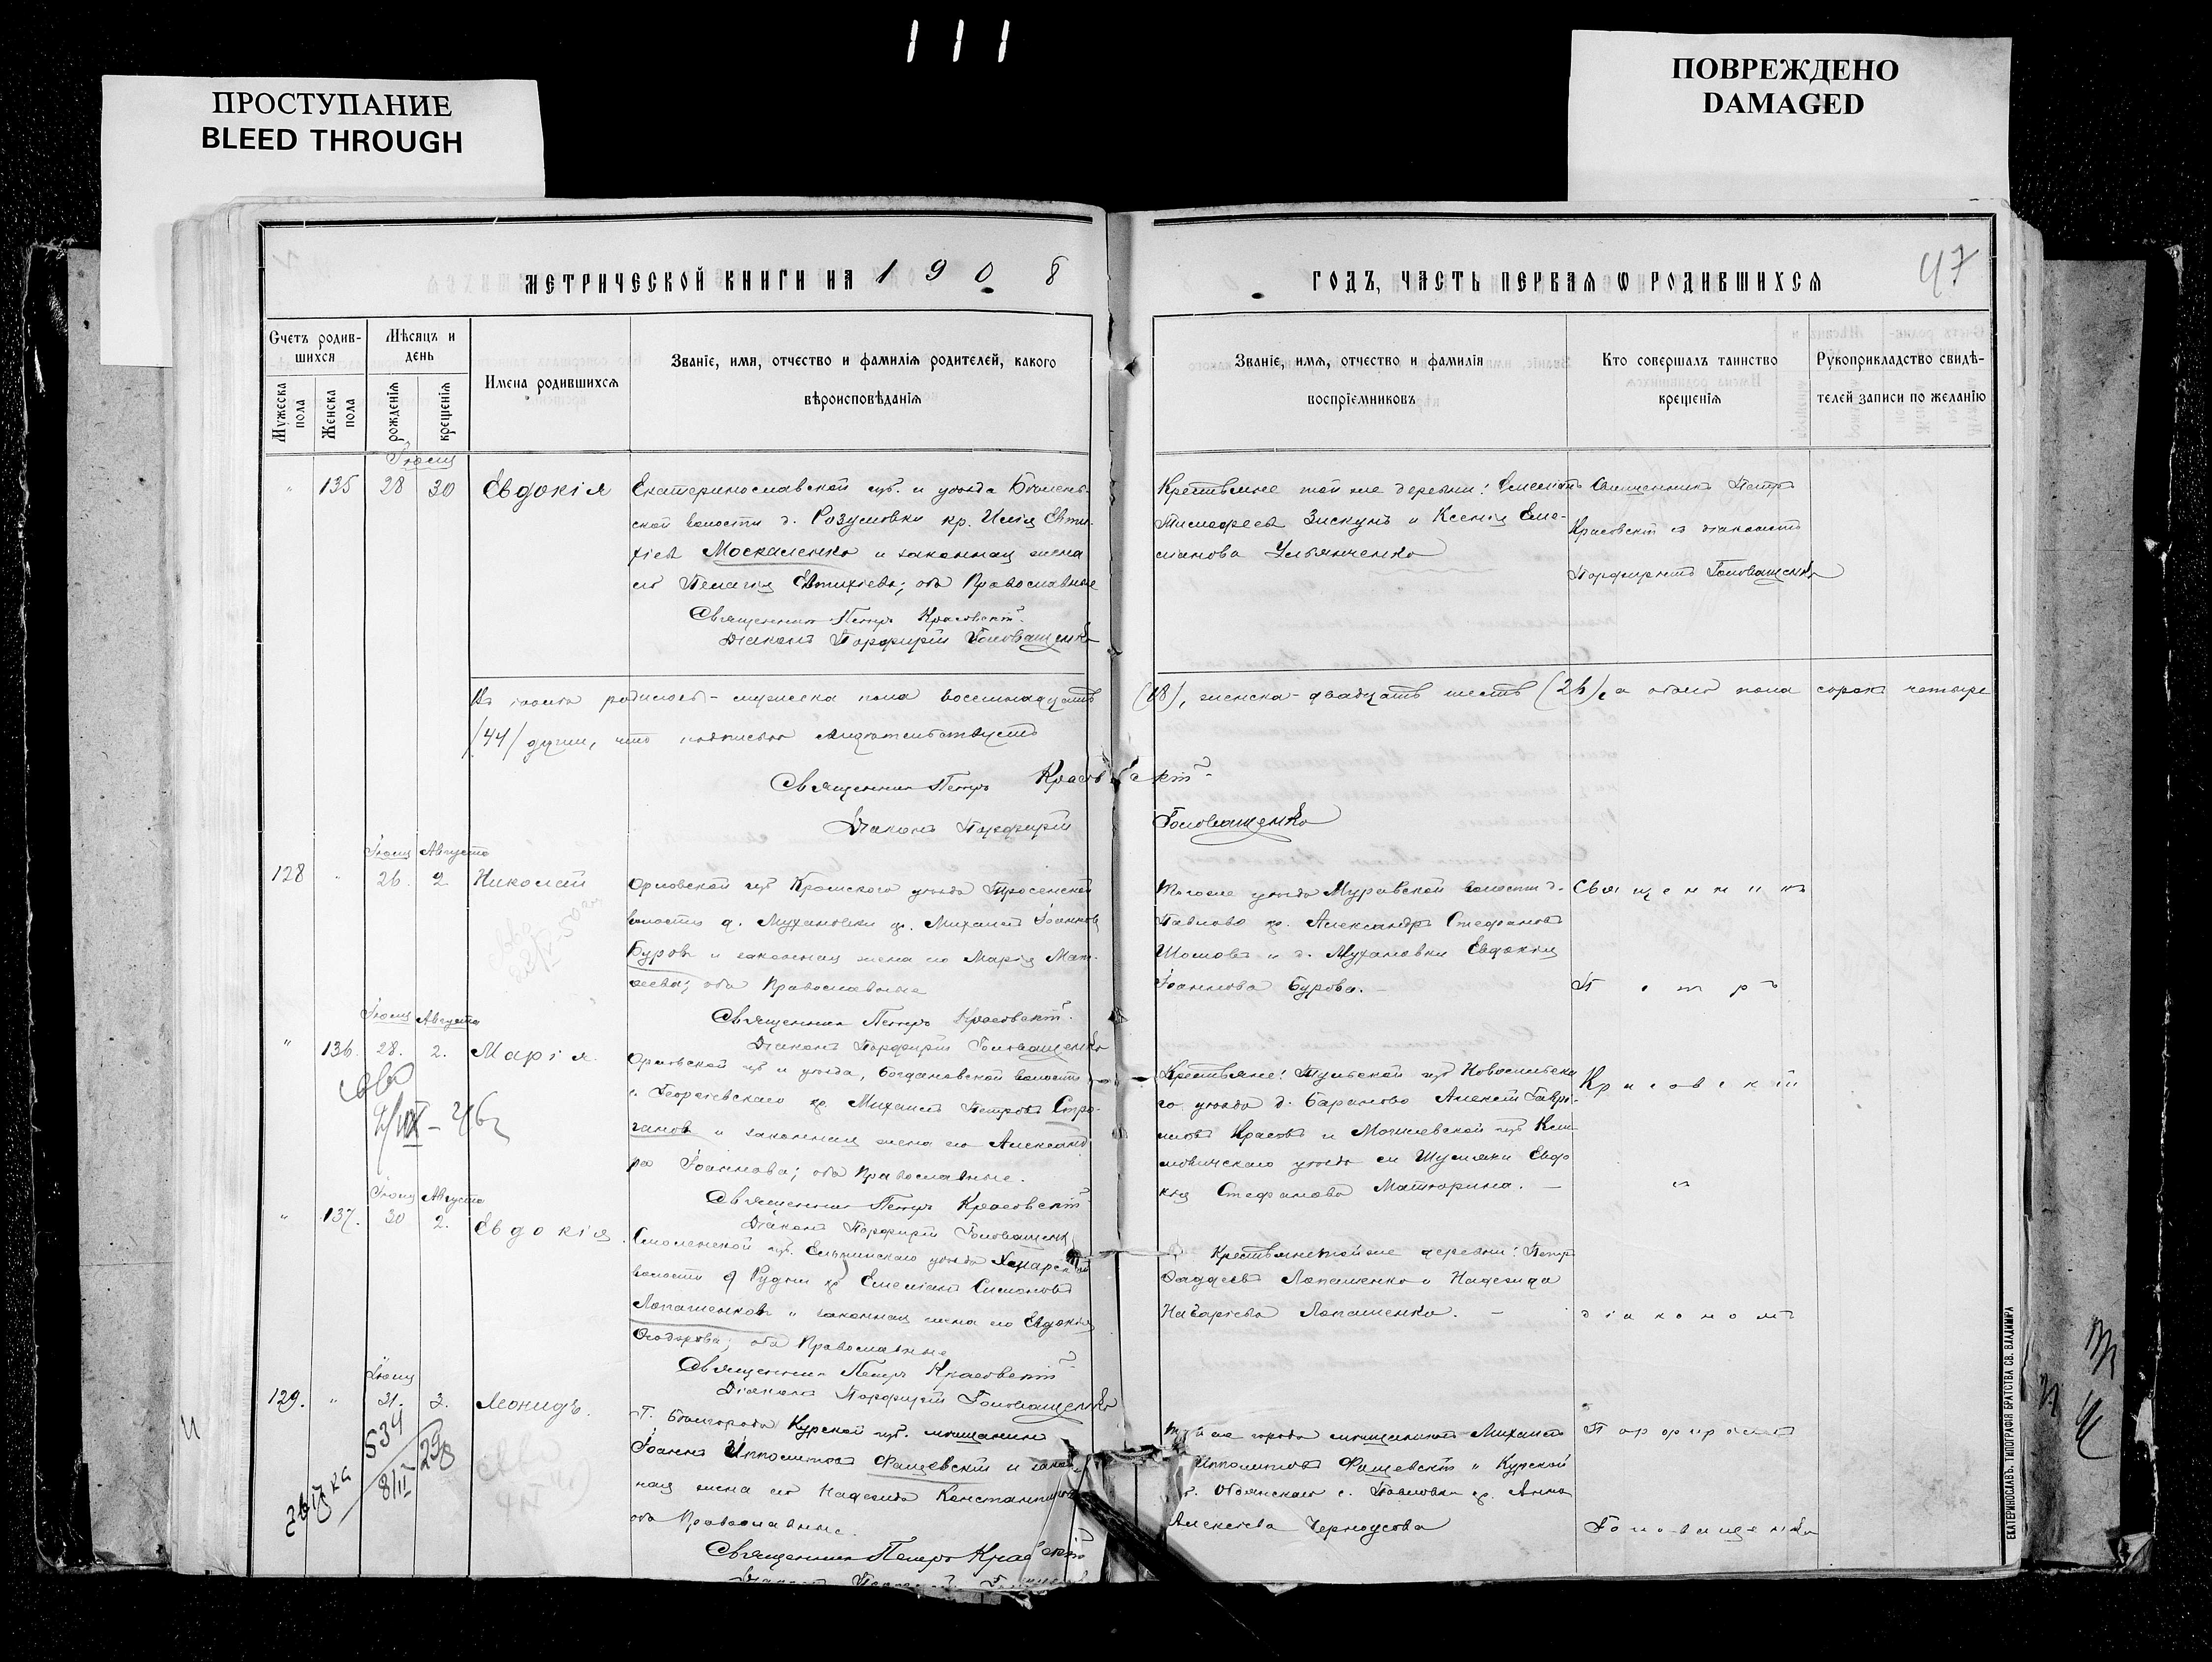 111
ПРОСТУПАНИЕ
BLEED THROUGH
ПОВРЕЖДЕНО
DAMAGED
МЕТРИЧЕСКОЙ КНИГИ НА 1908
ГОДЪ, ЧАСТЬ ПЕРВАЯ Ѡ РОДИВШИХСЯ
47
Счетъ родившихся
Мужеска пола
Женска пола
Мѣсяцъ и день
рожденія
крещенія
Имена родившихся
Званіе, имя, отчество и фамилія родителей, какого
вѣроисповѣданія
Званіе, имя, отчество и фамилія
воспріемниковъ
Кто совершалъ таинство
крещенія
Рукоприкладство свидѣ-
телей записи по желанію
Іюля
" 135 28 30 Евдокія
Екатеринославской губ. и уѣзда
волости д. Разумовки кр. Илія Евти-
хіевъ Москаленко и законная жена
его Пелагія Евтихіева; оба Православные
Священникъ Петръ Красовскій
Діаконъ Порфирій Головащенко
Крестьяне той же деревни: Емеліанъ
Тимофеевъ Зискунъ и Ксенія Еме-
ліанова Ульянченко
Священникъ Петръ
Красовскій съ діакономъ
Порфиріемъ Головащенко
родилось - мужеска пола восемнадцать (18), женска - двадцать шесть (26), а обоего пола сорокъ четыре
/44/ души, что подписью свидѣтельствуемъ
Священникъ Петръ Красовскій
Діаконъ Порфирій Головащенко
Іюля Августа
128 " 26. 2 Николай
Орловской губ Кромского уѣзда Тросенской
волости д. Мухановки кр. Михаилъ Іоанновъ
Буровъ и законная жена его Марія Мат-
ѳеева; оба Православные
Священникъ Петръ Красовскій
Діаконъ Порфирій Головащенко
Того же уѣзда Муравской волости д.
Павлово кр. Александръ Стефановъ
Шоповъ и д. Мухановки Евдокія
Іоаннова Бурова. -
Священникъ
Петръ
Іюля Августа
" 136. 28. 2. Марія
Орловской губ и уѣзда, Богдановской волости
с. Георгіевскаго кр. Михаилъ Петровъ Стро-
гановъ и законная жена его Александ-
ра Іоаннова; оба Православные.
Священникъ Петръ Красовскій
Діаконъ Порфирій Головащенко
Крестьяне: Тульской губ Новосильска-
го уѣзда д. Бараново Алексѣй Гаври-
ловъ Красовъ и Могилевской губ Кли-
мовичскаго уѣзда Шумячи Евдо-
кія Стефанова Маторина. -
Красовскій
съ
Іюля Августа
" 137. 30 2. Евдокія.
Смоленской губ. Ельнинскаго уѣзда
волости д Рудни кр Емеліанъ Симоновъ
Лопашенковъ и законная жена его Евдокія
Ѳеодорова; оба Православные
Священникъ Петръ Красовскій
Діаконъ Порфирій Головащенко
Крестьяне той же деревни: Петръ
Ѳаддеевъ Лопашенко и Надежда
Назаріева Лопашенко. -
діакономъ
Іюля
129. " 31. 3. Леонидъ.
Г. Бѣлгорода Курской губ. мѣщанинъ
Іоаннъ Ипполитовъ Фащевскій и закон-
ная жена его Надежда Константинова
оба Православные.
Священникъ Петръ Красовскій
Той же города мѣщанинъ Михаилъ
Ипполитовъ Фащевскій и Курской
г. Обоянскаго с. Павловки кр. Анна
Алексѣева Черноусова
Порфиріемъ
Головащенко
534
8/II
ЕКАТЕРИНОСЛАВЪ. ТИПОГРАФІЯ БРАТСТВА СВ. ВЛАДИМІРА